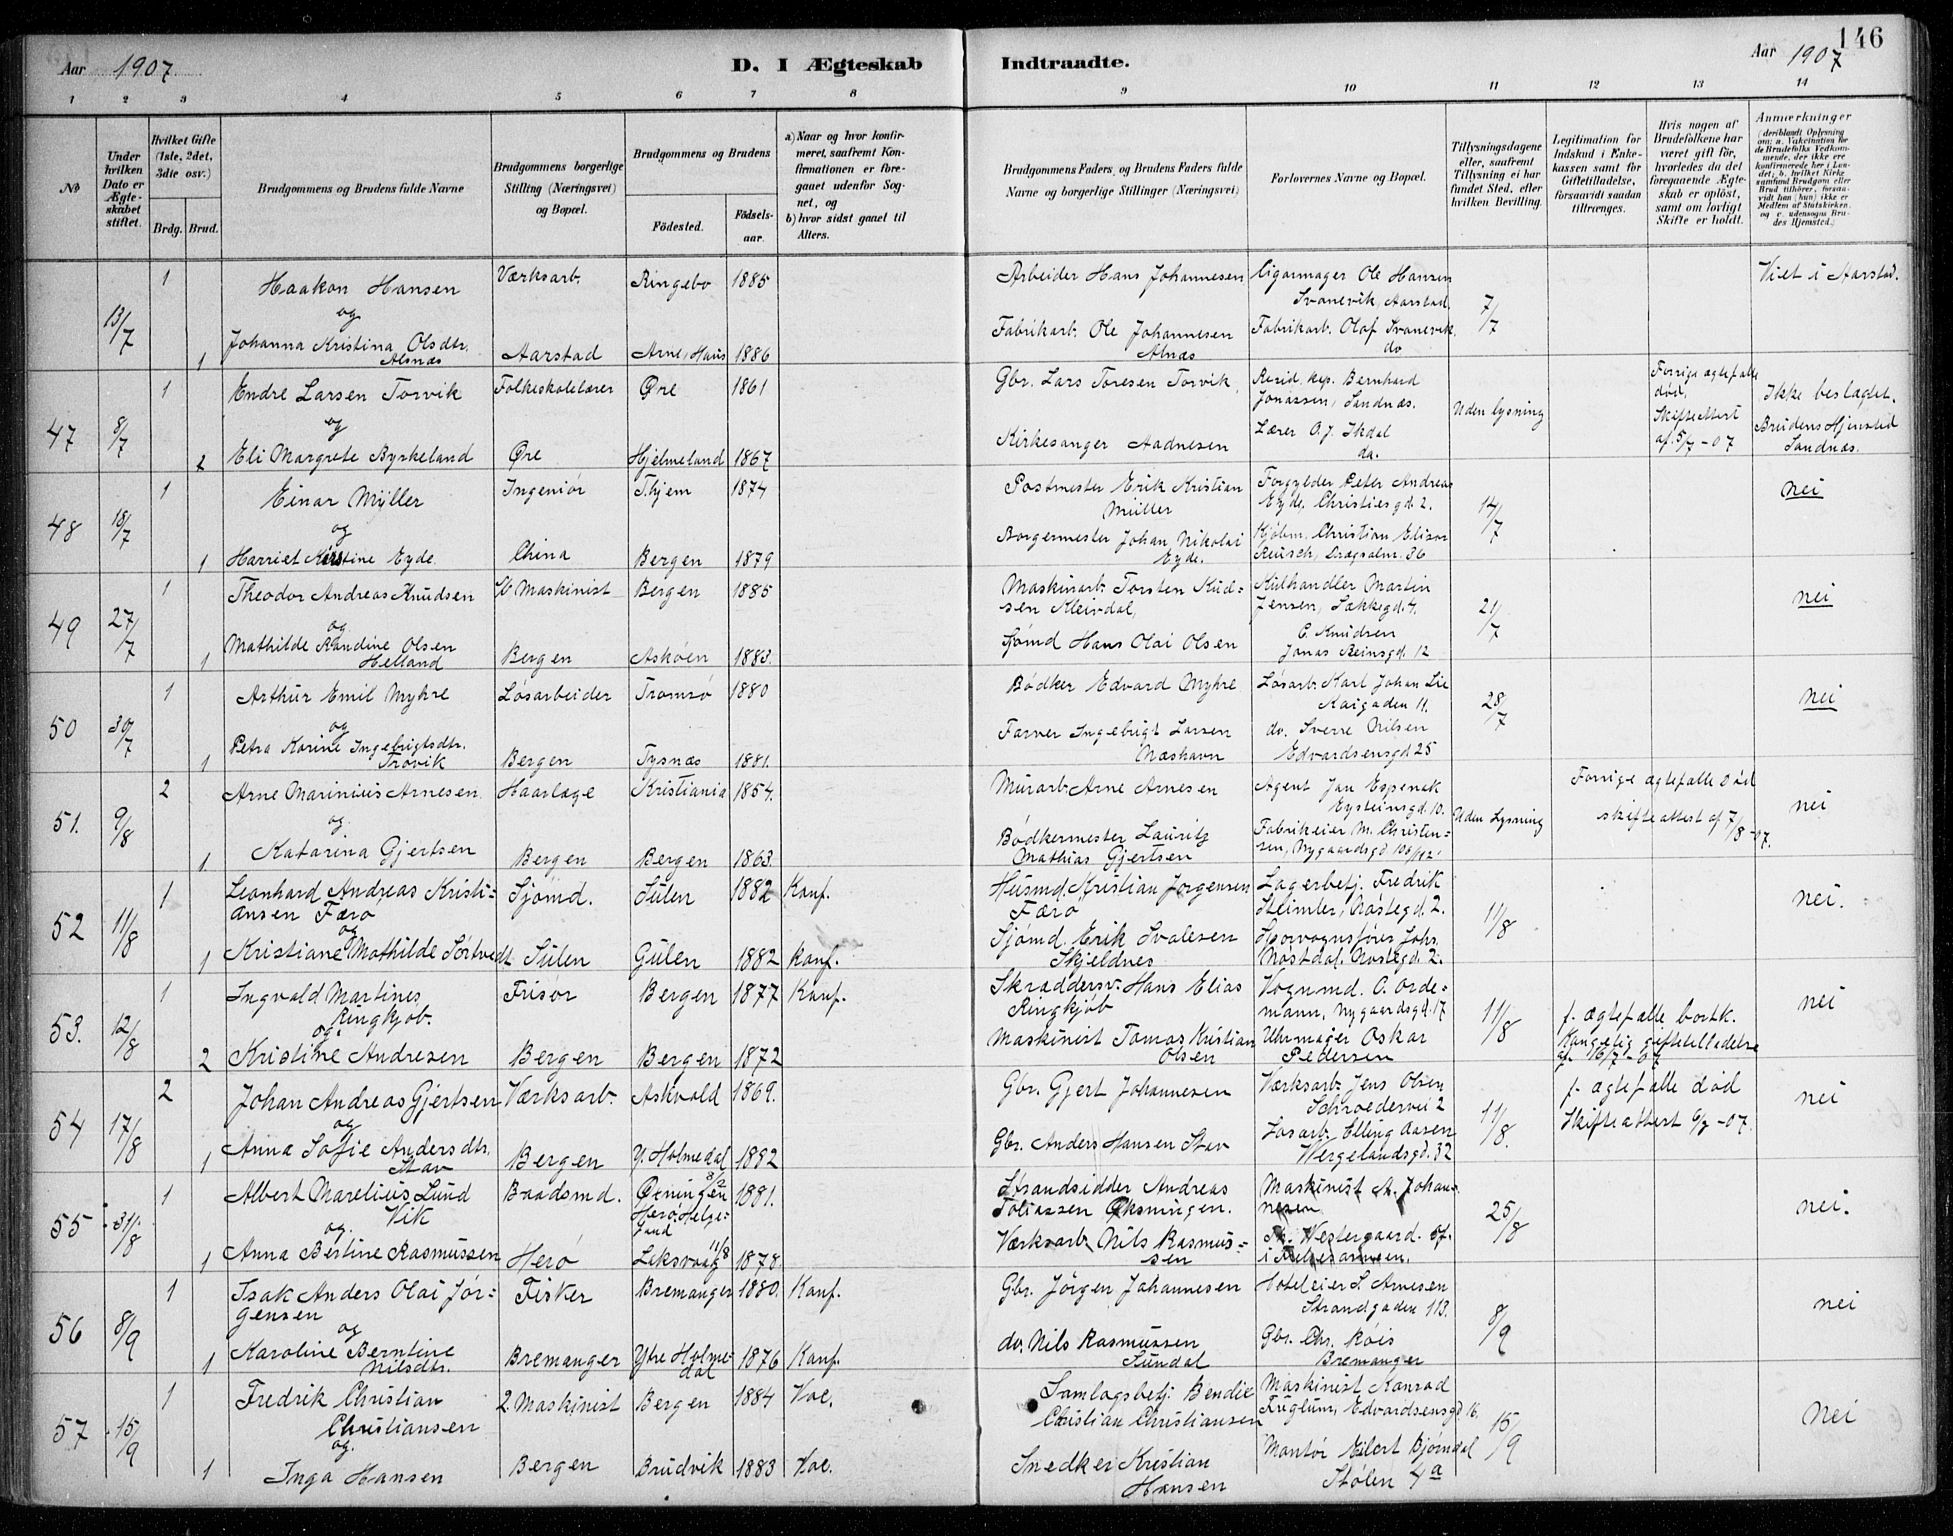 146
Aar 1907.
D. I Ægteskab
Indtraadte.
Aar 1907
1 2 3 4 5 6 7 8 9 10 11 12 13 14
No
Under hvilken Dato er Ægteskabet stiftet.
Hvilket Gifte (1ste, 2det, 3die osv.)
Brdg. Brud.
Brudgommens og Brudens fulde Navne
Brudgommens borgerlige Stilling (Næringsvei) og Bopæl.
Brudgommens og Brudens
Fødested.
Fødselsaar.
a) Naar og hvor konfirmeret, saafremt Konfirmationen er foregaaet udenfor Sognet, og
b) hvor sidst gaaet til Alters.
Brudgommens Faders, og Brudens Faders fulde Navne og borgerlige Stillinger (Næringsvei)
Forlovernes Navne og Bopæl.
Tillysningsdagene eller, saafremt Tillysning ei har fundet Sted, efter hvilken Bevilling.
Legitimation for Indskud i Enkekassen samt for Giftetilladelse, forsaavidt saadan tiltrænges.
Hvis nogen af Brudefolkene har været gift før, hvorledes da det foregaaende Ægteskab er opløst, samt om lovligt Skifte er holdt.
Anmærkninger
13/7 1 Haakon Hansen Værksarb. Ringebo 1885 Arbeider Hans Johannesen Cigarmager Ole Hansen Viet i Aarstad.
og Svanevik, Aarstad. 7/7
Johanna Kristina Olsdtr. Fabrikarb. Ole Johannesen Fabrikarb. Olaf Svanevik
1 Alsnæs Aarstad Arne, Haus 1886 Alnæs do
47 8/7 1 Endre Larsen Torvik Folkeskolelærer Øre 1861 Gbr. Lars Toresen Torvik, Resid. kap. Bernhard Forrige ægtefælle
Jonassen, Sandnæs. Uden lysning død. Ikke beslægtet.
og Kirkesanger Aadnesen Lærer O. J. Skdal Skifteattest Brudens Hjemsted
2 Eli Margrete Byrkeland Øre Hjelmeland 1867 do. af 5/7-07 Sandnæs.
48 18/7 1 Einar Mÿller Ingeniør T.hjem 1874 Postmester Erik Kristian Forgylder Peter Andreas nei
og Müller Eyde, Christiesgd. 2. 14/7
Borgermester Johan Nikolai Kjøbm. Christian Elisar
1 Harriet Kirstine Eyde China Bergen 1879 Eyde. Reusch, Dragsalm. 36
49 27/7 1 Theodor Andreas Knudsen Maskinist Bergen 1885 Maskinarb. Torsten Kud- Kulhandler Martin nei
og sen Kleivdal, Jensen, Sækkegd. 4. 21/7
Mathilde Randine Olsen Sjømd Hans Olai Olsen C. Knudsen
1 Helland Bergen Askøen 1883. Jonas Reinsgd. 12
50 30/7 1 Arthur Emil Myhre Løsarbeider Tromsø 1880 Bødker Edvard Myhre Løsarb. Karl Johan Lie nei
og Kaigaden 11. 28/7
Petra Karine Ingebrigtsdtr. Farver Ingebrigt Larsen do. Sverre Nilsen
1 Trovik Bergen Tysnæs 1881. Næshavn Edvardsensgd 25
51. 9/8 2 Arne Marinius Arnesen Haarlæge Kristiania 1854. Murarb. Arne Arnesen Agent Jan Espenak Forrige ægtefælle død
og Eysteinsgd. 10. Uden Lysning skifteattest af 7/8-07. nei
Bødkermester Lauritz Fabrikeier M. Christen-
1 Katarina Gjertsen Bergen Bergen 1863. Mathias Gjertsen sen, Nygaardsgd
52 11/8 1 Leonhard Andreas Kristi- Sjømd. Sulen 1882 Konf. Husmd. Kristian Jørgensen Lagerbetj. Fredrik nei.
ansen Færø Færø Steimler, Nøstegd. 2. 11/8
og Sjømd. Erik Svalesen Sporvognsfører Johs.
1 Kristiane Mathilde Sørtvedt Sulen Gulen 1882 Konf. Skjeldnes Nøstdal, Nøstegd. 2.
53. 12/8 1 Ingvald Martines Frisør Bergen 1877 Konf. Skræddersv. Hans Elias Vognmd. O. Orde- nei
Ringkjøb. Ringkjøb mann, Nygaardsgd. 17 11/8 f. ægtefælle bortk.
og Maskinist Tomas Kristian Uhrmager Oskar Kongelig giftetilladelse
2 Kristine Andresen Bergen Bergen 1872 Olsen Pedersen af 16/7-07
54 17/8 2 Johan Andreas Gjertsen Værksarb. Askvold 1869. Gbr. Gjert Johannesen Værksarb. Jens Olsen f. ægtefælle død nei
og Schroedervei 2 11/8. Skifteattest 6/7-07.
Anna Sofie Andersdtr. Gbr. Anders Hansen Stav Løsarb. Elling Aasen
1 Stav Bergen Y. Holmedal 1882 Wergelandsgd. 32
55 31/8 1 Albert Marelius Lund Baadsmd. Øxningen 1881. Strandsidder Andreas Maskinist A. Johan- nei.
Vik Herø, Helge- Tobiassen Øksningen. nesen 25/8
og land Værksarb. Nils Rasmus- Th. Westergaard. Of.
1 Anna Bertine Rasmussen Herø Leksvaag 1878. sen i Frelsesarmeen.
56 8/9 1 Isak Anders Olai Jør- Fisker Bremanger 1880. Konf. Gbr. Jörgen Johannesen Hoteleier S. Arnesen nei
gensen Strandgaden 113. 8/9
og do. Nils Rasmussen Gbr. Chr. Røis
1 Karoline Berntine Nilsdtr. Bremanger Ytre Holmedal 1876 Konf. Sundal Bremanger
57 15/9 1 Fredrik Christian 2. Maskinist Bergen 1884 Vac. Samlagsbetj. Bendix Maskinist Konrad nei
Christiansen Christian Christiansen Fuglum, Edvardsensgd 16. 15/9
og Snedker Kristian Montør Eilert Bjørndal
1 Inga Hansen Bergen Brudvik 1883 Vac. Hansen Stølen 4a